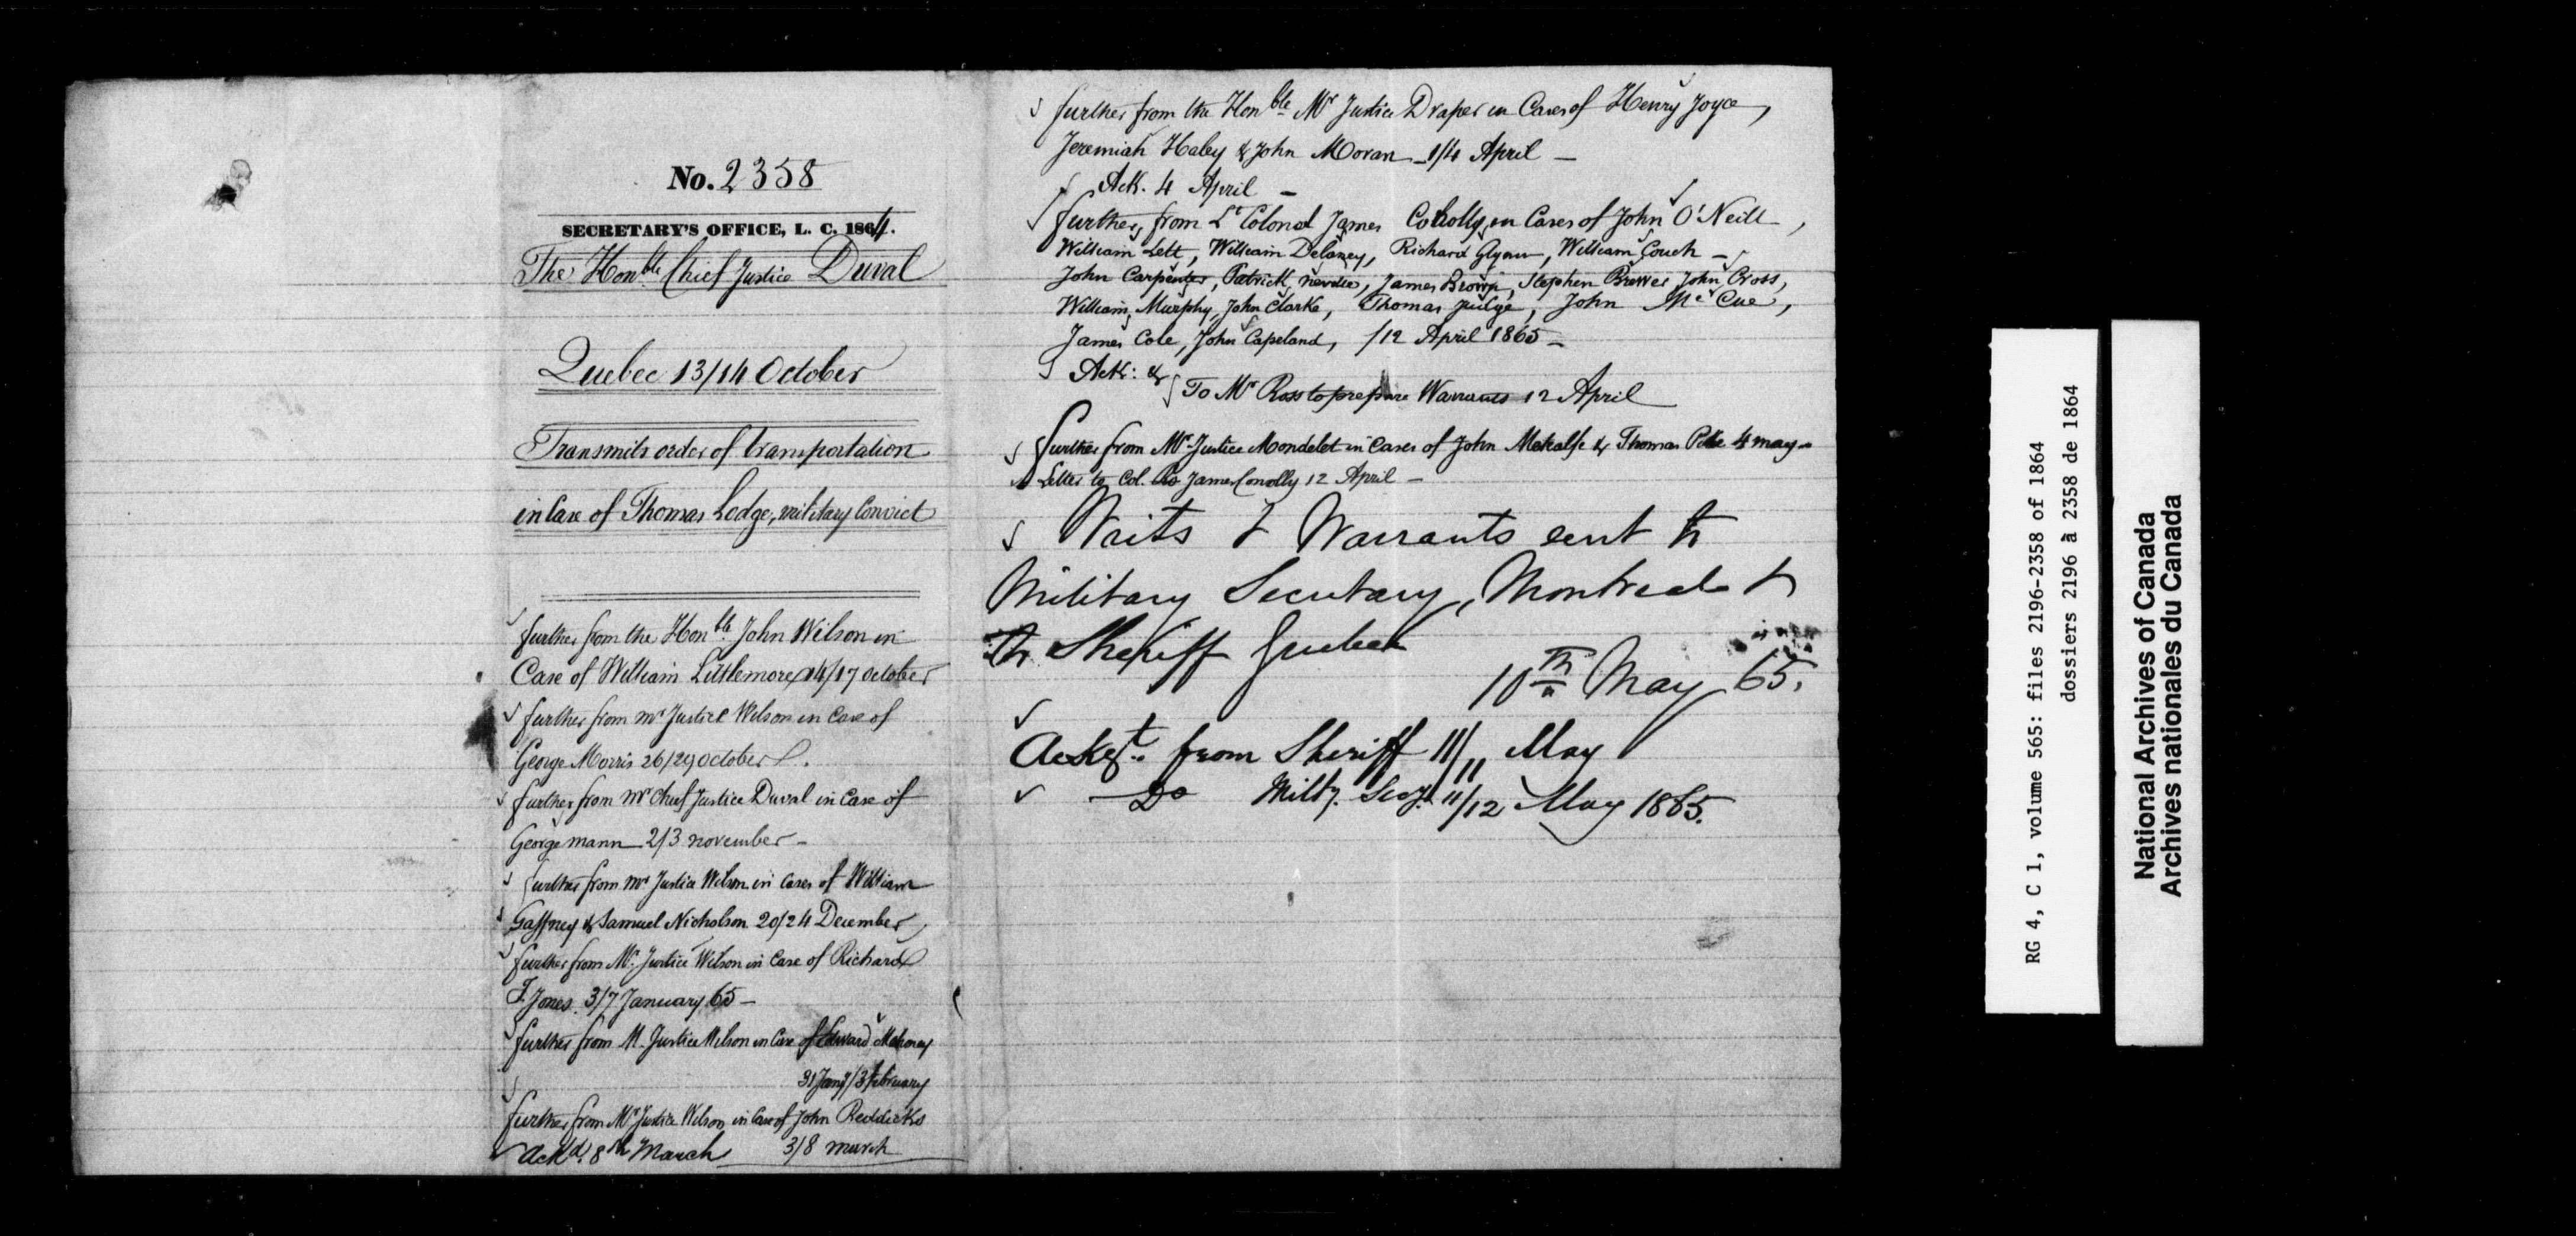 No. 2358
SECRETARY'S OFFICE, L. C. 1864.
The Honble Chief Justice Duval
Quebec 13/14 October
Transmits order of transportation
in Case of Thomas Lodge, military Convict
further from the Honble. John Wilson in
Case of William Littlemore 14/17 October
further from Mr Justice Wilson in Case of
George Morris 26/29 October
further from Mr Chief Justice Duval in Case of
George Mann 2/3 november -
further from Mr Justice Wilson in Cases of William
Gaffney & Samuel Nicholson 20/24 December
further from Mr. Justice Wilson in Case of Richard
Jones. 3/7 January 65 -
further from M. Justice Wilson in Case of Edward Mahoney
31 Jany/3 February
further from Mr Justice Wilson in Case of John Reddicks
3/8 march
Ackd. 8th March
further from the Honble Mr Justice Draper in Cases of Henry Joyce,
Jeremiah Haley & John Moran - 1/4 April -
Ack. 4 April -
further, from Lt Colonel James Conolly, in Cases of John O'Neill,
William Lett, William Delaney, Richard Glynn, William Couch -
John Carpenter, Patrick, James Brown, Stephen Brewer John Cross,
William Murphy, John Clarke, Thomas Judge, John McCue,
James Cole, John Capeland, /12 April 1865 -
Ack: &
To Mr Ross to prepare Warrants 12 April
further from Mr. Justice Mondelet in Cases of John Metcalfe & Thomas 4 may -
Letter to Col. James Conolly 12 April -
Writs & Warrants sent to
Military Secretary, Montreal &
to Sheriff Quebec
10th May 65.
Ackgt. from Sheriff 11/11 May
Do Milty. Secy. 11/12 May 1865.
RG 4, C 1, volume 565: files 2196-2358 of 1864
dossiers 2196 à 2358 de 1864
National Archives of Canada
Archives nationales du Canada